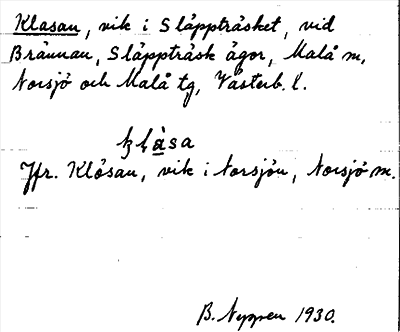 Klasan, vik i Släppträsket, vid
Brännan, Släppträsk ägor, Malå sn,
Norsjö och Malå tg, Västerb. l.
klàsa
Jfr. Klösan, vik i Norsjön, Norsjö sn.
B. Nyppen 1930.